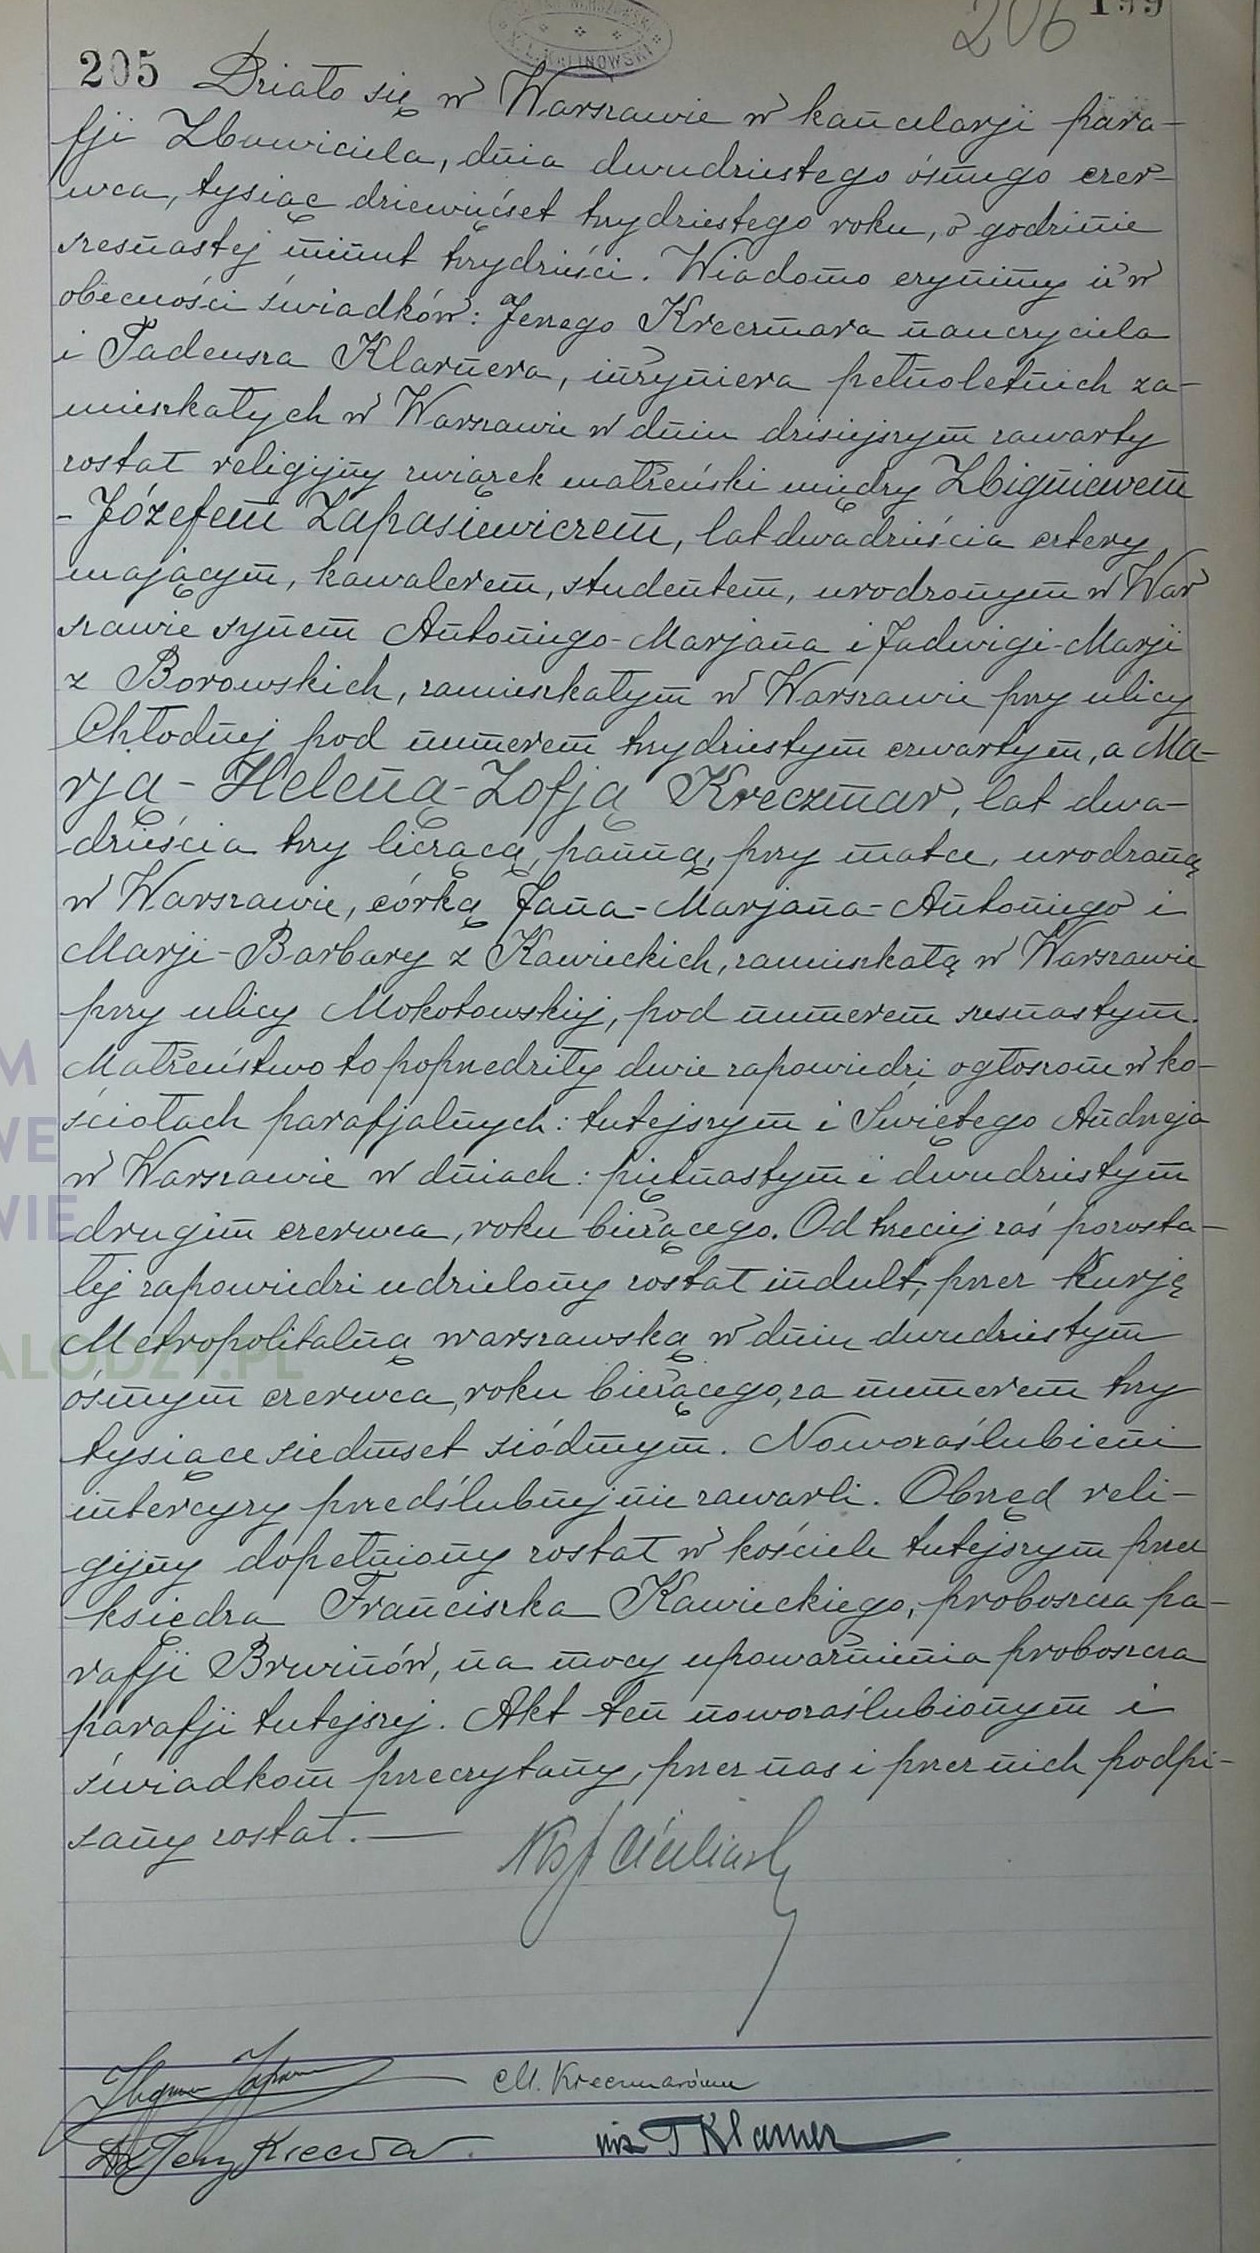 206 199
L. KALINOWSKI
205 Działo się w Warszawie w kancelarji para-
fji Zbawiciela, dnia dwudziestego ósmego czer-
wca, tysiąc dziewięćset trzydziestego roku, o godzinie
szesnastej minut trzydzieści. Wiadomo czynimy iż w
obecności świadków: Jerzego Kreczmara nauczyciela
i Tadeusza Klarnera, inżyniera pełnoletnich za-
mieszkałych w Warszawie w dniu dzisiejszym zawarty
został religijny związek małżeński między Zbigniewem
- Józefem Zapasiewiczem, lat dwadzieścia cztery
mającym, kawalerem, studentem, urodzonym w War
szawie synem Antoniego-Marjana i Jadwigi-Marji
z Borowskich, zamieszkałym w Warszawie przy ulicy
Chłodnej pod numerem trzydziestym czwartym, a Ma-
rją-Heleną-Zofją Kreczmar, lat dwa-
dzieścia trzy liczącą, panną, przy matce, urodzoną
w Warszawie, córką Jana-Marjana-Antoniego i
Marji-Barbary z Kawieckich, zamieszkałą w Warszawie
przy ulicy Mokotowskiej, pod numerem szesnastym.
Małżeństwo to poprzedziły dwie zapowiedzi ogłoszone w ko-
ściołach parafjalnych: tutejszym i Świętego Andrzeja
w Warszawie w dniach: piętnastym i dwudziestym
drugim czerwca, roku bieżącego. Od trzeciej zaś pozosta-
łej zapowiedzi udzielony został indult, przez Kurję
Metropolitalną warszawską w dniu dwudziestym
ósmym czerwca, roku bieżącego, za numerem trzy
tysiące siedmset siódmym. Nowozaślubieni
intercyzy przedślubnej nie zawarli. Obrzęd reli-
gijny dopełniony został w kościele tutejszym przez
księdza Franciszka Kawieckiego, proboszcza pa-
rafji Brwinów, na mocy upoważnienia proboszcza
parafji tutejszej. Akt ten nowozaślubionym i
świadkom przeczytany, przez nas i przez nich podpi-
sany został.
M. Kreczmarówna
Jerzy Kreczmar inż T Klarner
M
WE
WIE
ALODZY.PL